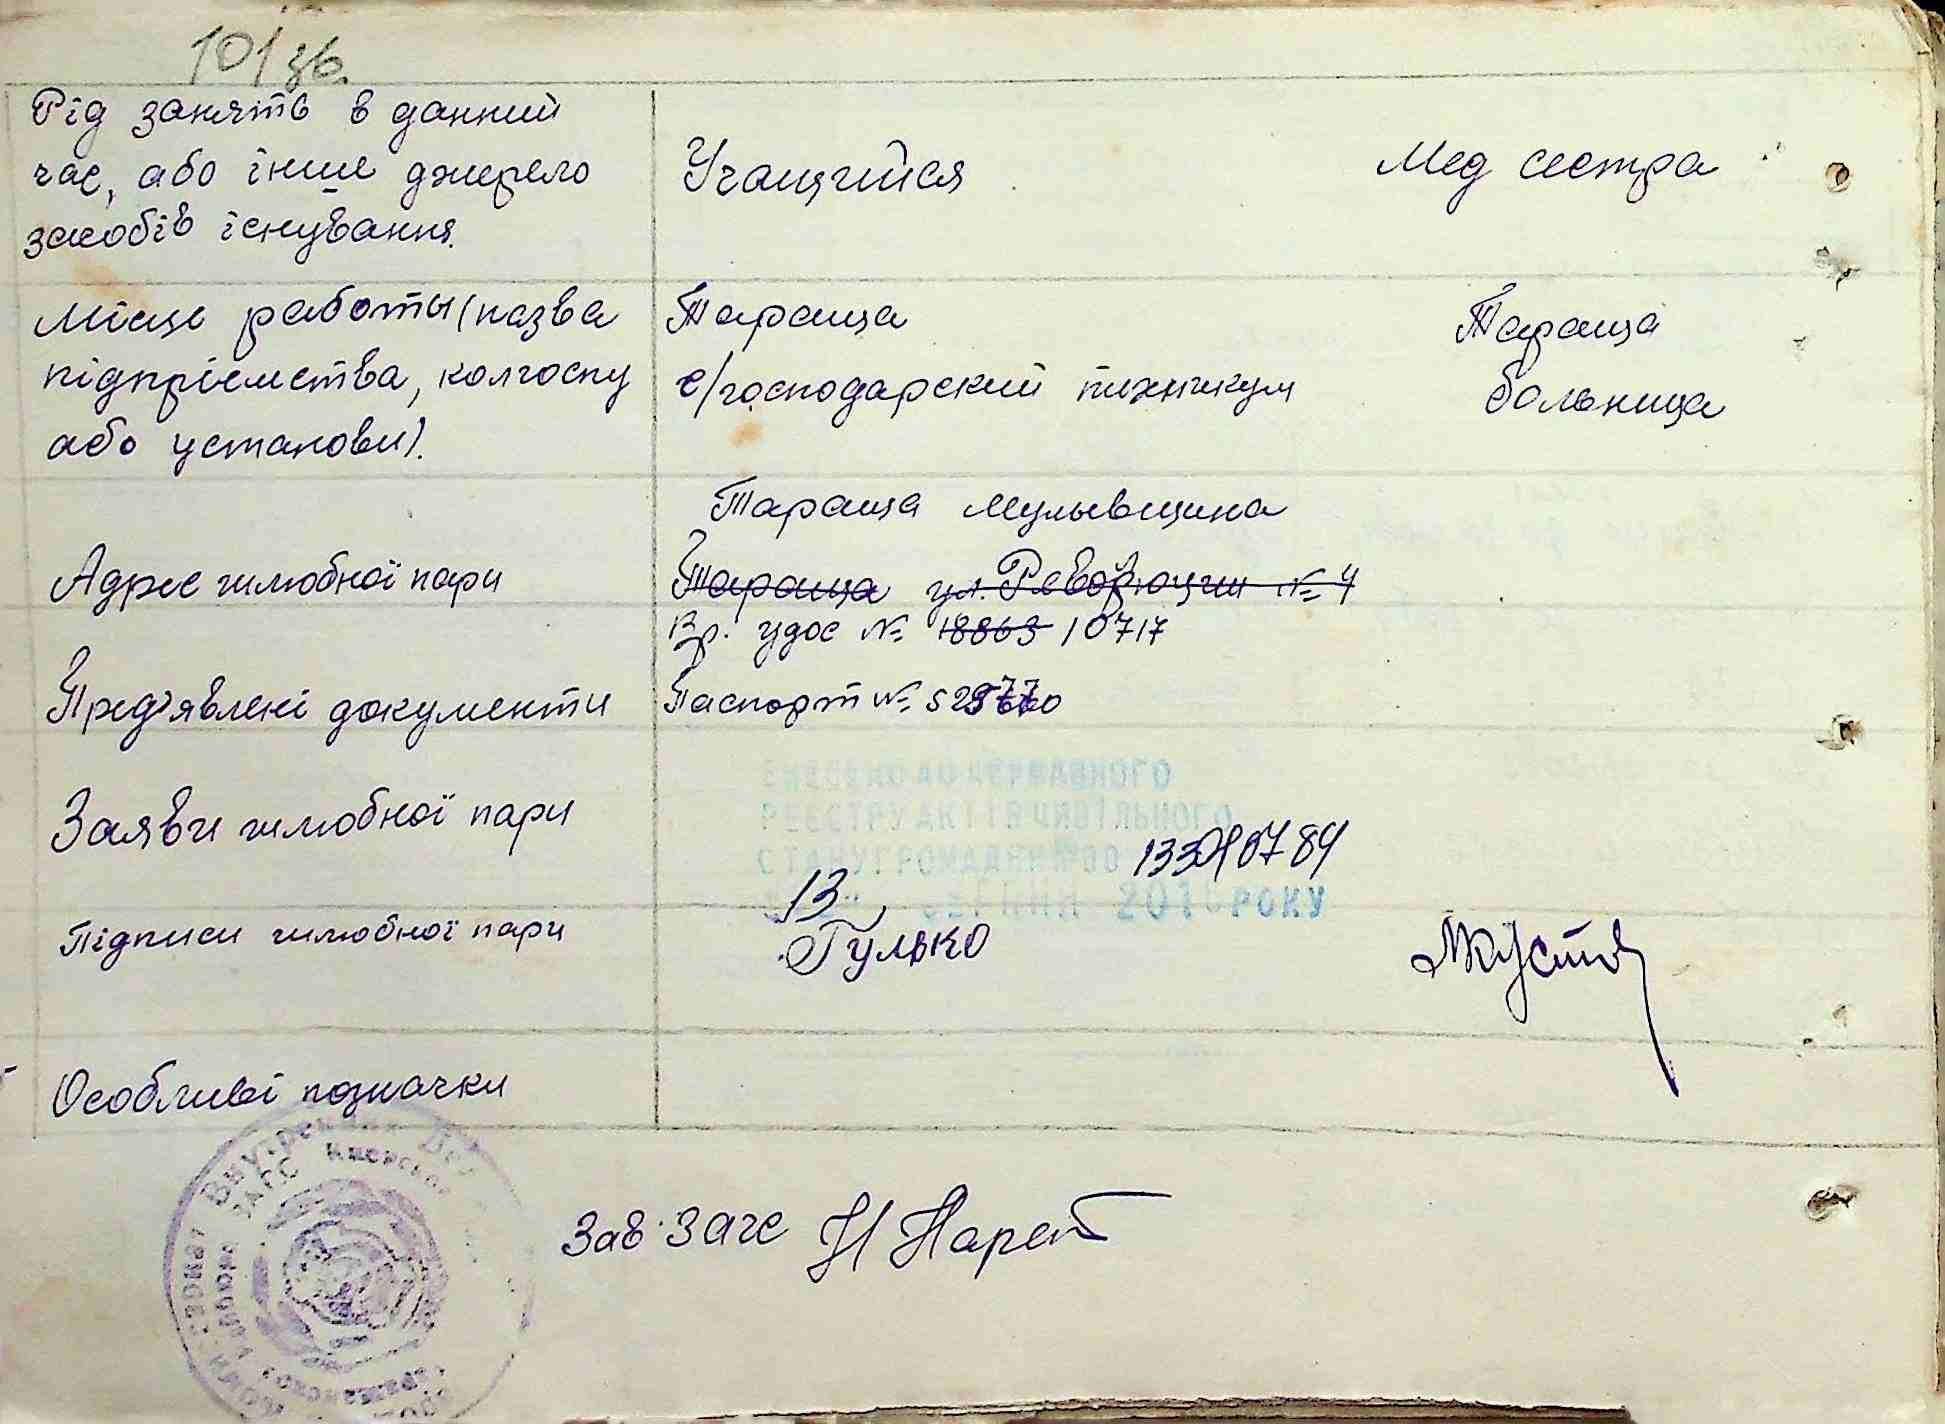 101 зв.
Рід занять в данний
час, або інше джерело
засобів існування.
Учащийся
Мед сестра
Місце работы (назва
підприємства, колгоспу
або установи).
Тараща
с/господарский техникум
Тараща
больница
Тараща Мулывщина
Адрес шлюбної пари
Тараща ул. Революции № 4
Вр. удос № 18863 10717
Пред'явлені документи
Паспорт №
ВНЕСЕНО ДО ДЕРЖАВНОГО
РЕЄСТРУ АКТІВ ЦИВІЛЬНОГО
СТАНУ ГРОМАДЯН
Заяви шлюбної пари
13
СЕРПНЯ 201 РОКУ
Підписи шлюбної пари
Гулько
Особливі позначки
Зав. Загс
Внутренних
ЗАГС Киевской